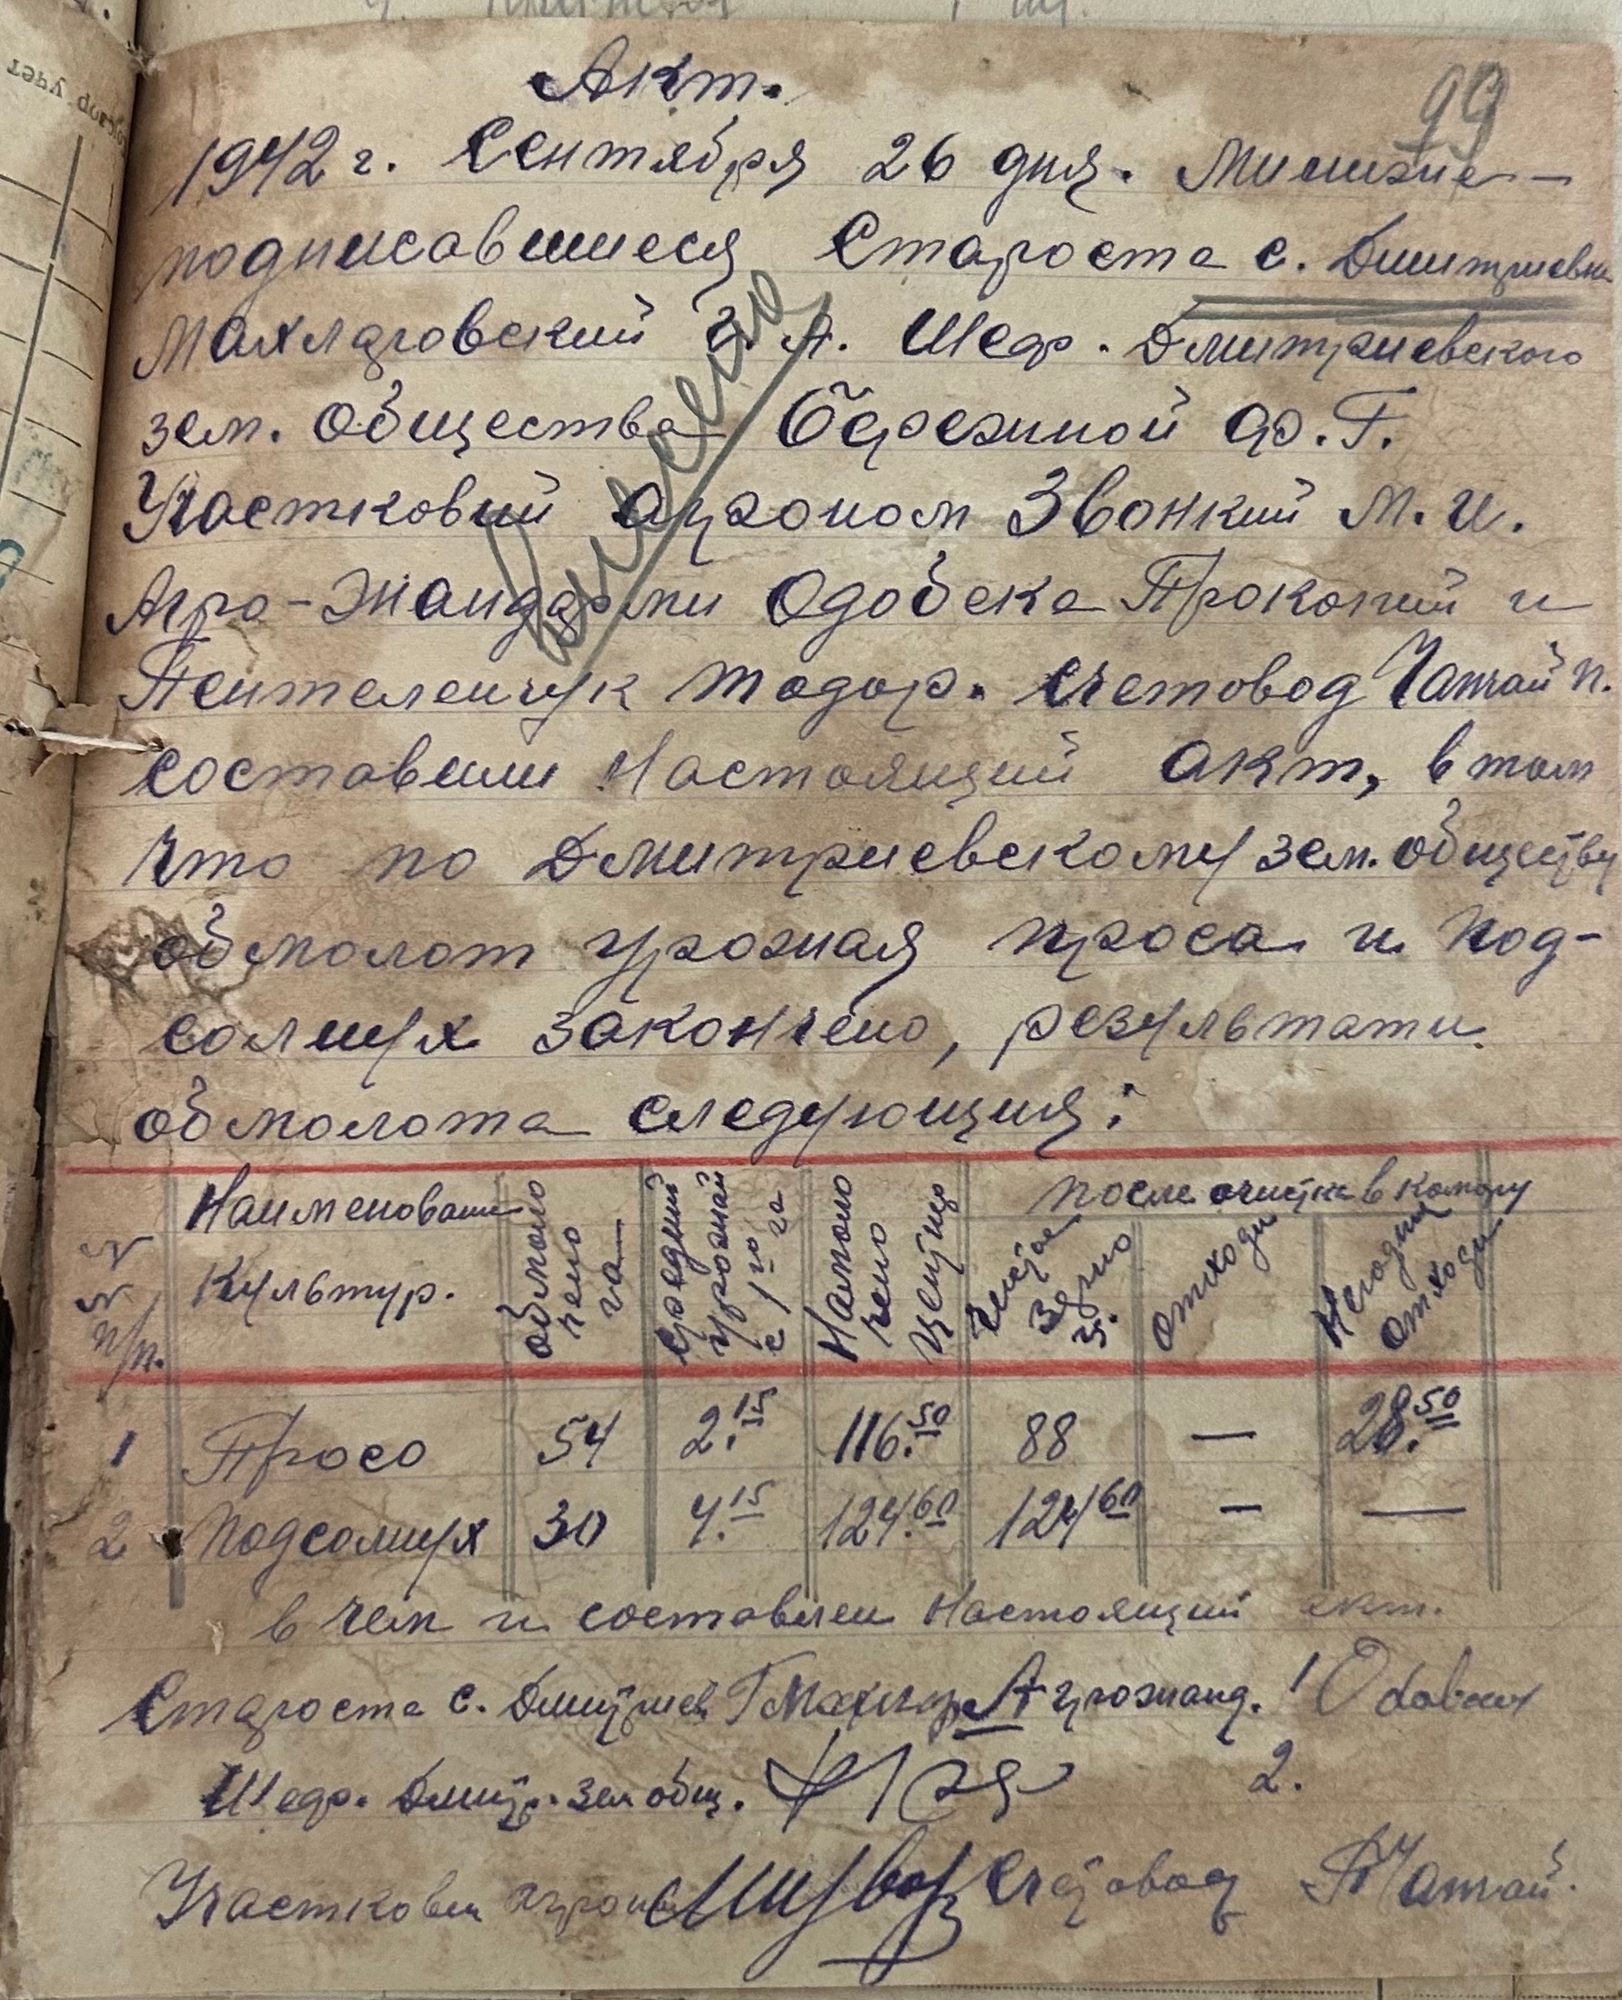 99
Акт.
1942 г. Сентября 26 дня. Мы ниже-
подписавшиеся Староста с. Дмитриевка
Махляровский Г. А. Шеф. Дмитриевского
зем. общества Бережной Ф. Г.
Участковий агроном Звонкий М. И.
Агро-жандарми Одобеска Прокопий и
Пентеленчук Тодор. Счетовод Чатай П.
составили настоящий акт, в том
что по Дмитриевскому зем. обществу
обмолот урожая проса и под-
солнух закончено, результати
обмолота следующия:
№№ п/п. Наименование культур. обмоло чено га Средний урожай с 1 го га Намоло чено центнер после очистке в комору
Чистое зерно ц. отходи Негодни отходи
1 Просо 54 2.15 116.50 88 — 28.50
2 Подсолнух 30 4.15 124.60 124 60 — —
в чем и составлен настоящий акт.
Староста с. Дмитриев Агрожанд. 1
Шеф. Дмитр. зем общ. 2.
Участковий агроном Счетовод П Чатай.